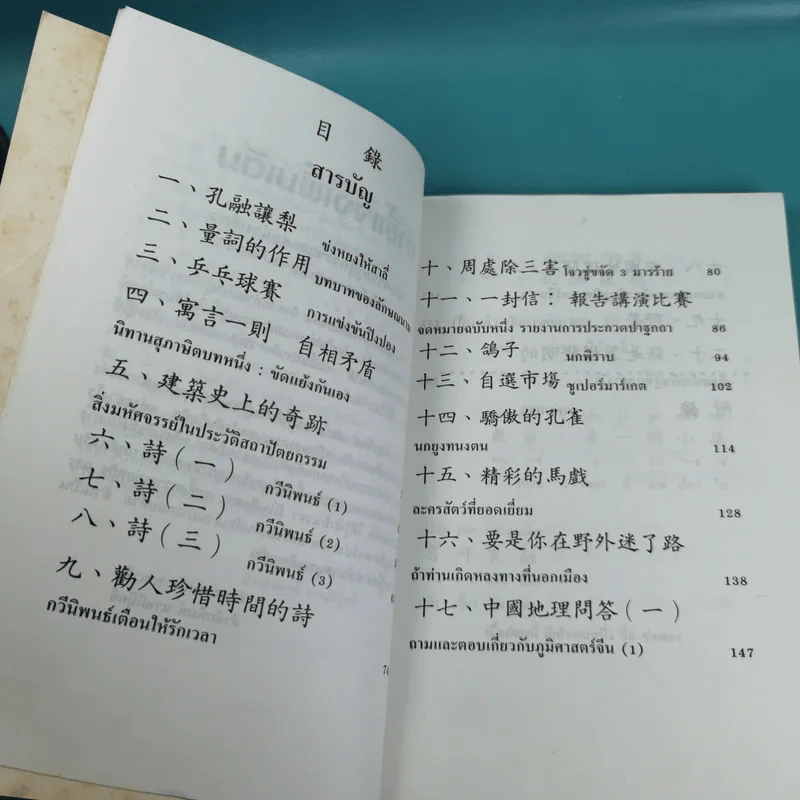 目錄
สารบัญ
一、孔融讓梨
ข่งหยงให้สาลี่
二、量詞的作用
บทบาทของลักษณนาม
三、乒乓球賽
การแข่งขันปิงปอง
四、寓言一則 自相矛盾
นิทานสุภาษิตบทหนึ่ง : ขัดแย้งกันเอง
五、建築史上的奇跡
สิ่งมหัศจรรย์ในประวัติสถาปัตยกรรม
六、詩(一)
กวีนิพนธ์ (1)
七、詩(二)
กวีนิพนธ์ (2)
八、詩(三)
กวีนิพนธ์ (3)
九、勸人珍惜時間的詩
กวีนิพนธ์เตือนให้รักเวลา
十、周處除三害 โจวชู่ขจัด 3 มารร้าย 80
十一、一封信： 報告講演比賽
จดหมายฉบับหนึ่ง รายงานการประกวดปาฐกถา 86
十二、鴿子 นกพิราบ 94
十三、自選市場 ซูเปอร์มาร์เกต 102
十四、驕傲的孔雀
นกยูงทนงตน 114
十五、精彩的馬戲
ละครสัตว์ที่ยอดเยี่ยม 128
十六、要是你在野外迷了路
ถ้าท่านเกิดหลงทางที่นอกเมือง 138
十七、中國地理問答(一)
ถามและตอบเกี่ยวกับภูมิศาสตร์จีน (1) 147